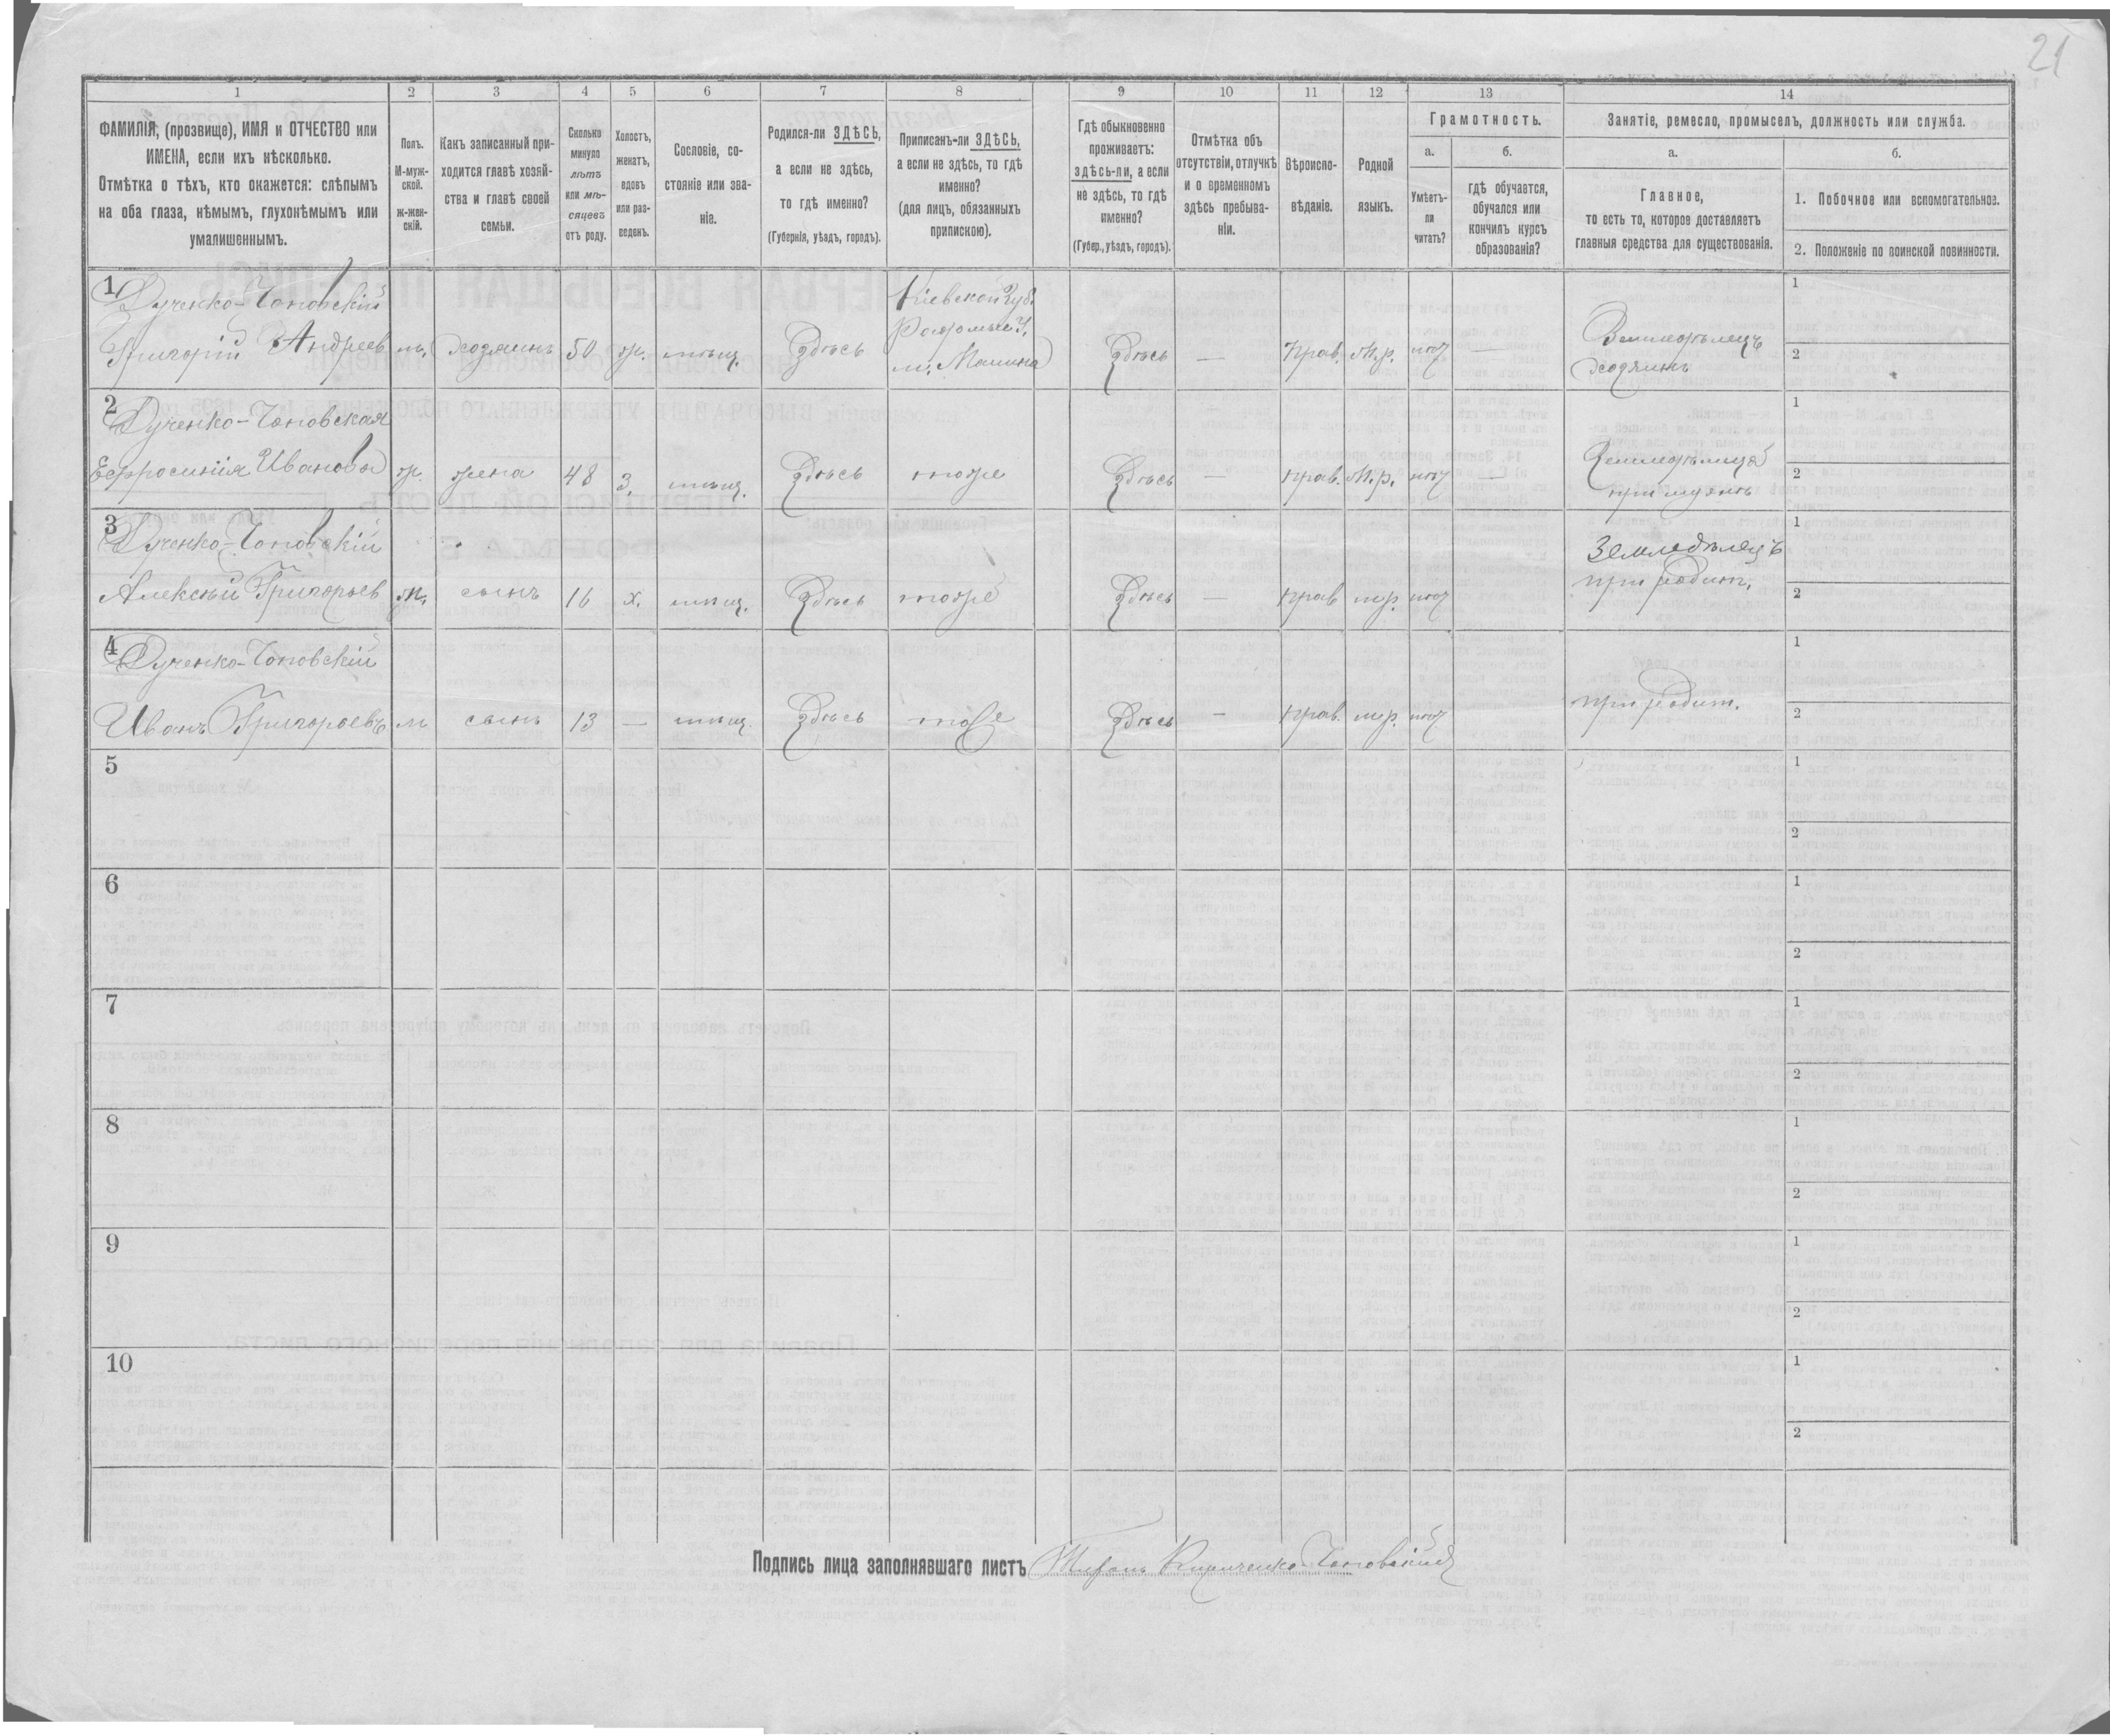 21
1 2 3 4 5 6 7 8 9 10 11 12 13 14
ФАМИЛІЯ, (прозвище), ИМЯ и ОТЧЕСТВО или
ИМЕНА, если ихъ нѣсколько.
Отмѣтка о тѣхъ, кто окажется: слѣпымъ
на оба глаза, нѣмымъ, глухонѣмымъ или
умалишеннымъ.
Полъ.
М-муж-
ской.
ж-жен-
скій.
Какъ записанный при-
ходится главѣ хозяй-
ства и главѣ своей
семьи.
Сколько
минуло
лѣтъ
или мѣ-
сяцевъ
отъ роду.
Холостъ,
женатъ,
вдовъ
или раз-
веденъ.
Сословіе, со-
стояніе или зва-
ніе.
Родился-ли ЗДѢСЬ,
а если не здѣсь,
то гдѣ именно?
(Губернія, уѣздъ, городъ).
Приписанъ-ли ЗДѢСЬ,
а если не здѣсь, то гдѣ
именно?
(для лицъ, обязанныхъ
припискою).
Гдѣ обыкновенно
проживаетъ:
здѣсь-ли, а если
не здѣсь, то гдѣ
именно?
(Губер., уѣздъ, городъ).
Отмѣтка объ
отсутствіи, отлучкѣ
и о временномъ
здѣсь пребыва-
ніи.
Вѣроиспо-
вѣданіе.
Родной
языкъ.
Грамотность.
а.
Умѣетъ-
ли
читать?
б.
гдѣ обучается,
обучался или
кончилъ курсъ
образованія?
Занятіе, ремесло, промыселъ, должность или служба.
а.
Главное,
то есть то, которое доставляетъ
главныя средства для существованія.
б.
1. Побочное или вспомогательное.
2. Положеніе по воинской повинности.
1
Дученко-Чоповскій
Григорій Андреев м. хозяинъ 50 ж. мѣщ. Здѣсь
Кіевской Губ.
Радомыс. У.
м. Малина
Здѣсь — Прав. М.р. нѣт —
Земледѣлецъ
хозяинъ
1
2
2
Дученко-Чоповская
Ефросинія Иванова ж. жена 48 З. мѣщ. Здѣсь тоже Здѣсь — прав. М.р. нѣт —
Земледѣлица
при мужѣ
1
2
3
Дученко-Чоповскій
Алексѣй Григорьев м. сынъ 16 х. мѣщ. Здѣсь тоже Здѣсь — прав м.р. нѣт
Земледѣлецъ
при родит.
1
2
4
Дученко-Чоповскій
Иванъ Григорьевъ м сынъ 13 — мѣщ. Здѣсь тоже Здѣсь — прав. м.р. нѣт
при родит.
1
2
5
1
2
6
1
2
7
1
2
8
1
2
9
1
2
10
1
2
Подпись лица заполнявшаго листъ Кириченко-Чоповскій